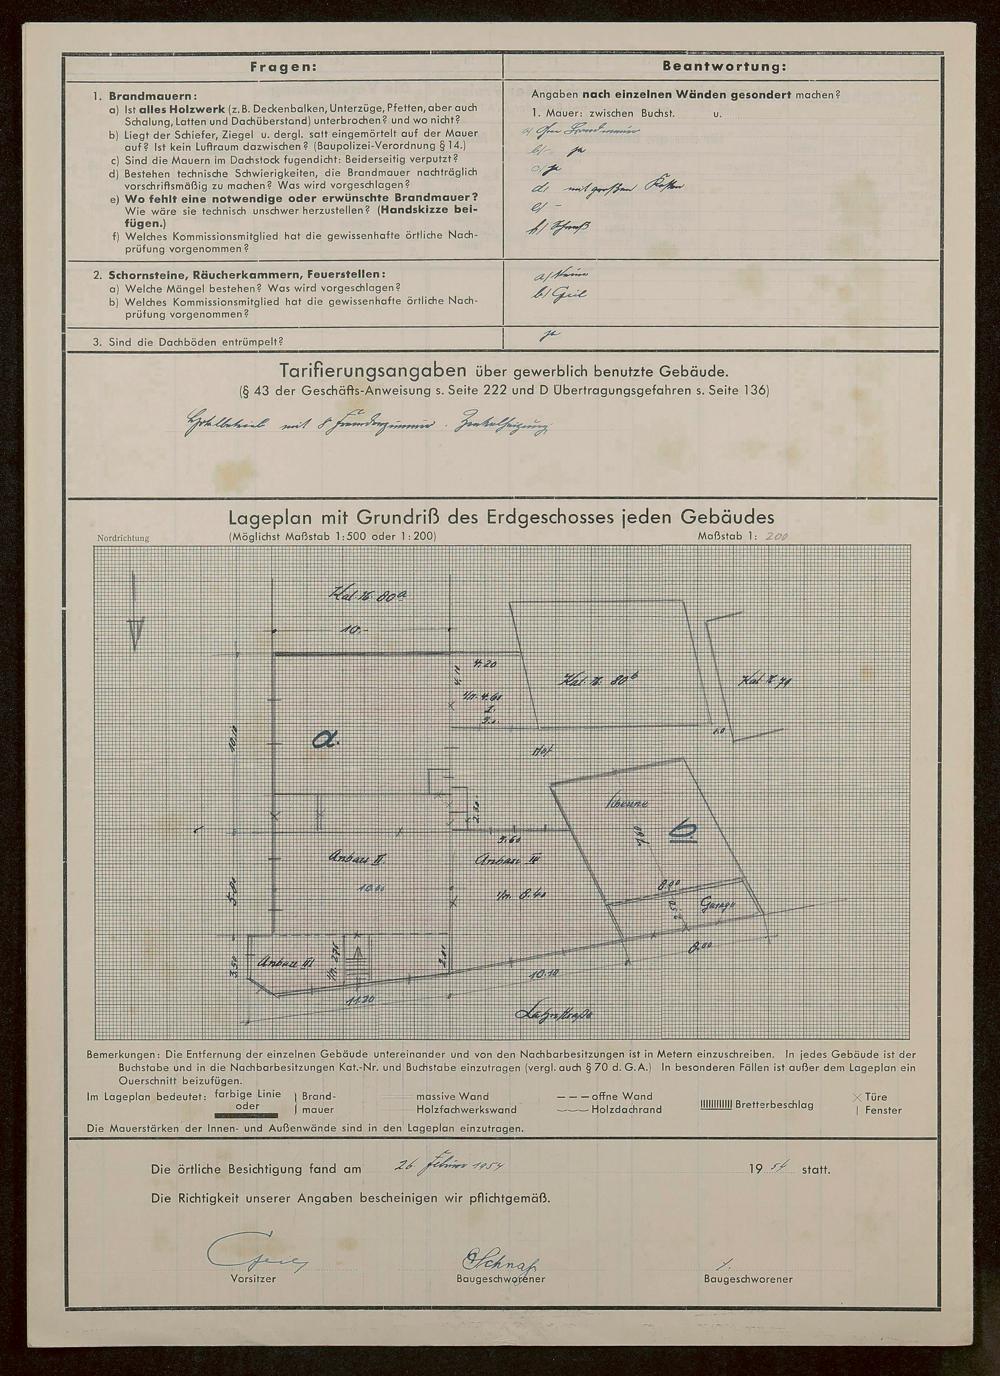 Fragen:
Beantwortung:
1. Brandmauern:
a) Ist alles Holzwerk (z. B. Deckenbalken, Unterzüge, Pfetten, aber auch
Schalung, Latten und Dachüberstand) unterbrochen? und wo nicht?
b) Liegt der Schiefer, Ziegel u. dergl. satt eingemörtelt auf der Mauer
auf? Ist kein Luftraum dazwischen? (Baupolizei-Verordnung § 14.)
c) Sind die Mauern im Dachstock fugendicht: Beiderseitig verputzt?
d) Bestehen technische Schwierigkeiten, die Brandmauer nachträglich
vorschriftsmäßig zu machen? Was wird vorgeschlagen?
e) Wo fehlt eine notwendige oder erwünschte Brandmauer?
Wie wäre sie technisch unschwer herzustellen? (Handskizze bei-
fügen.)
f) Welches Kommissionsmitglied hat die gewissenhafte örtliche Nach-
prüfung vorgenommen?
Angaben nach einzelnen Wänden gesondert machen?
1. Mauer: zwischen Buchst. u.
b) - ja
c) ja
d) mit großen Kosten
e) -
f) Schnaß
2. Schornsteine, Räucherkammern, Feuerstellen:
a) Welche Mängel bestehen? Was wird vorgeschlagen?
b) Welches Kommissionsmitglied hat die gewissenhafte örtliche Nach-
prüfung vorgenommen?
a) Keine
b) Geil
3. Sind die Dachböden entrümpelt?
ja
Tarifierungsangaben über gewerblich benutzte Gebäude.
(§ 43 der Geschäfts-Anweisung s. Seite 222 und D Übertragungsgefahren s. Seite 136)
Hotelbetrieb mit 8 Fremdenzimmer. Zentralheizung.
Lageplan mit Grundriß des Erdgeschosses jeden Gebäudes
Nordrichtung
(Möglichst Maßstab 1:500 oder 1:200)
Maßstab 1: 200
Kat. N. 80a
10.-
4.20
Kat. N. 80b
Kat. N. 79
a.
10.10
Hof
2.50
Scheune
b.
7.60
Anbau II.
Anbau IV
10.00
8.00
Garage
5.00
Anbau III
3.50
2.80
8.00
10.10
11.20
Bemerkungen: Die Entfernung der einzelnen Gebäude untereinander und von den Nachbarbesitzungen ist in Metern einzuschreiben. In jedes Gebäude ist der
Buchstabe und in die Nachbarbesitzungen Kat.-Nr. und Buchstabe einzutragen (vergl. auch § 70 d. G.A.) In besonderen Fällen ist außer dem Lageplan ein
Querschnitt beizufügen.
Im Lageplan bedeutet: farbige Linie oder
Brand-
mauer
massive Wand
Holzfachwerkswand
offne Wand
Holzdachrand
Bretterbeschlag
Türe
Fenster
Die Mauerstärken der Innen- und Außenwände sind in den Lageplan einzutragen.
Die örtliche Besichtigung fand am 26. Februar 1954 19 54 statt.
Die Richtigkeit unserer Angaben bescheinigen wir pflichtgemäß.
Geil
Schnaß
Vorsitzer
Baugeschworener
Baugeschworener